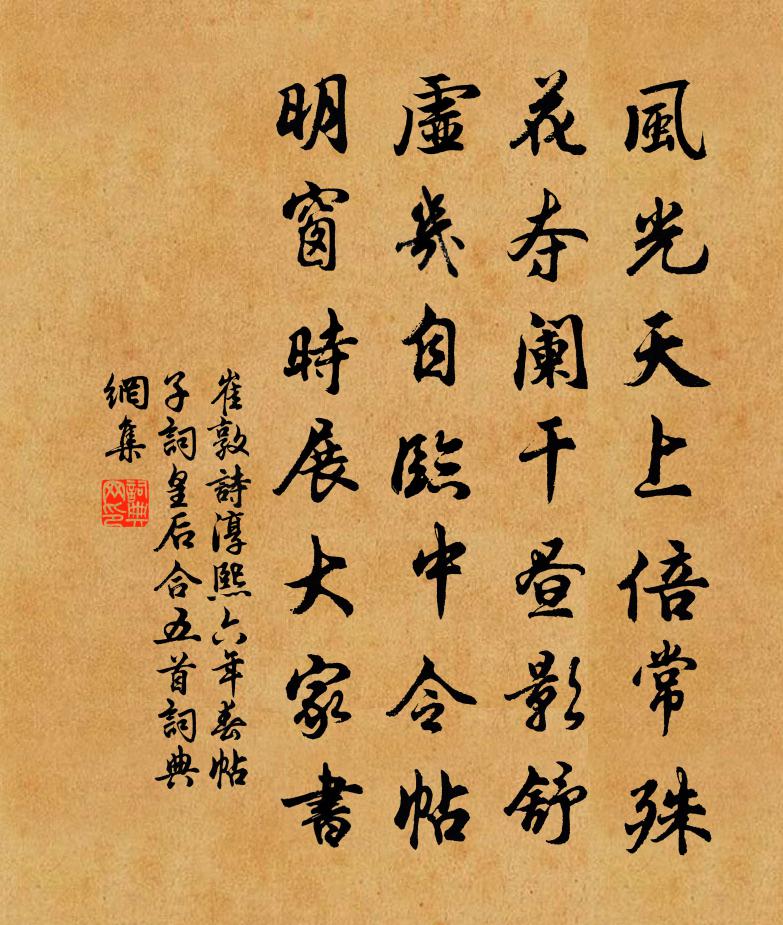 風光天上倍常殊
花夺阑干昼影舒
虛幾自臨中令帖
明窗時展大家書
崔敦詩淳熙六年春帖
子詞皇后合五首詞典
網集
詞典
网印